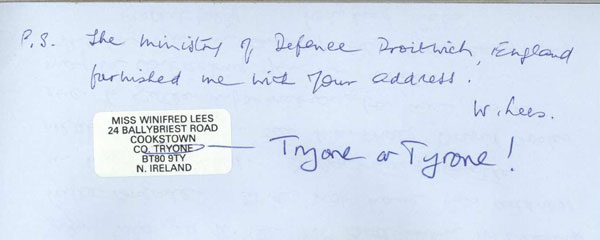 P.S. The Ministry of Defence Droitwich, England
furnished me with your address.
W. Lees.
MISS WINIFRED LEES
24 BALLYBRIEST ROAD
COOKSTOWN
CO. TRYONE
BT80 9TY
N. IRELAND
Tryone or Tyrone!